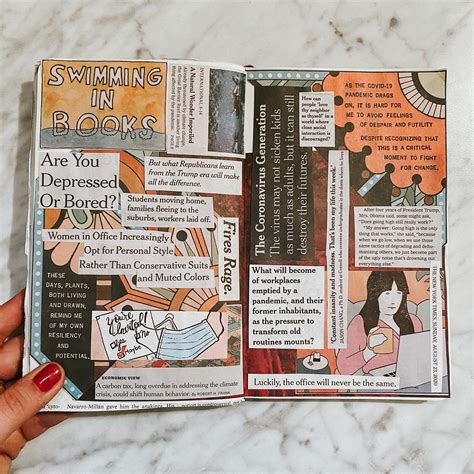 SWIMMING
IN
BOOKS
INTERNATIONAL 4-14
A Natural Wonder Imperiled
Already threatened by climate change,
the Great Barrier Reef is another living
thing affected by the pandemic. PAGE
Are You
Depressed
Or Bored?
But what Republicans learn
from the Trump era will make
all the difference.
Students moving home,
families fleeing to the
suburbs, workers laid off.
Fires Rage.
Women in Office Increasingly
Opt for Personal Style
Rather Than Conservative Suits
and Muted Colors
THESE
DAYS, PLANTS,
BOTH LIVING
AND DRAWN,
REMIND ME
OF MY OWN
RESILIENCY
AND
POTENTIAL.
You're
ECONOMIC VIEW
A carbon tax, long overdue in addressing the climate
crisis, could shift human behavior. By ROBERT H. FRANK
Navarro-Millán gave him the anakinra. His
The Coronavirus Generation
The virus may not sicken kids
as much as adults, but it can still
destroy their futures.
How can
people "love
thy neighbor
as thyself" in
a world where
close social
interaction is
discouraged?
AS THE COVID-19
PANDEMIC DRAGS
ON, IT IS HARD FOR
ME TO AVOID FEELINGS
OF DESPAIR AND FUTILITY
DESPITE RECOGNIZING THAT
THIS IS A CRITICAL
MOMENT TO FIGHT
FOR CHANGE.
"Constant insanity and madness. That's been my life this week."
After four years of President Trump,
Mrs. Obama said, some might ask,
"Does going high still really work?"
"My answer: Going high is the only
thing that works," she said, "because
when we go low, when we use those
same tactics of degrading and dehu-
manizing others, we just become part
of the ugly noise that's drowning out
everything else."
What will become
of workplaces
emptied by a
pandemic, and their
former inhabitants,
as the pressure to
transform old
routines mounts?
THE NEW YORK TIMES, SUNDAY, AUGUST 23, 2020
Luckily, the office will never be the same.